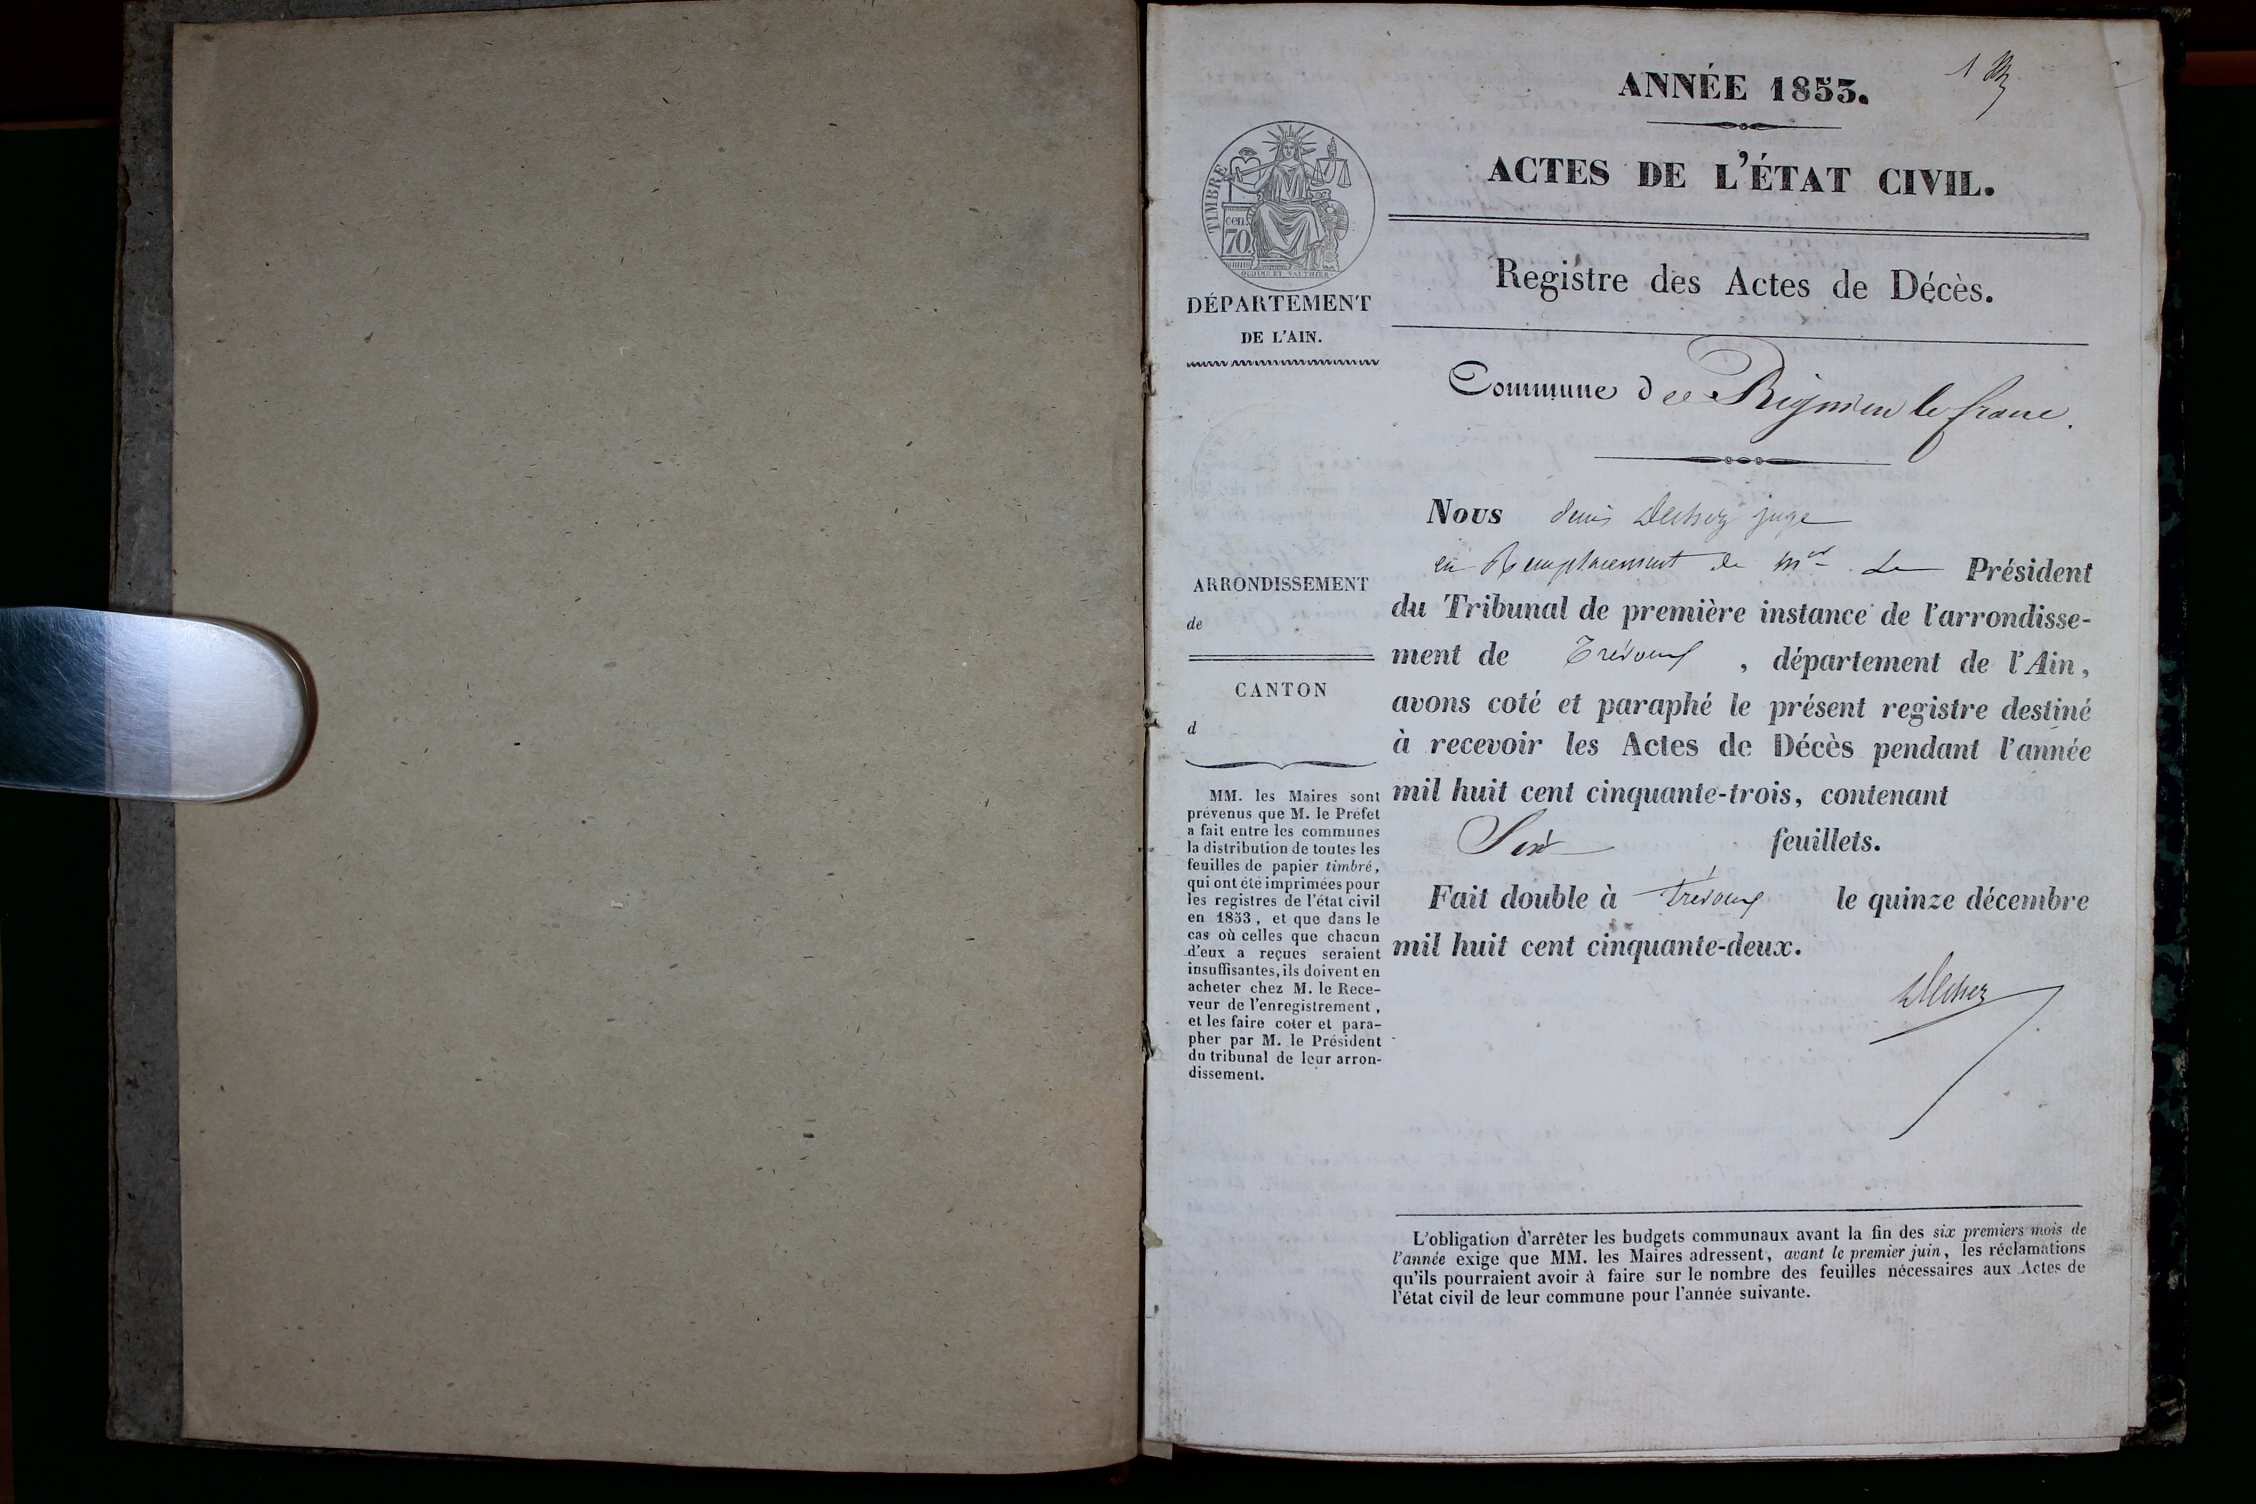 1
ANNÉE 1853.
ACTES DE L'ÉTAT CIVIL.
Registre des Actes de Décès.
TIMBRE
cen.
70
DÉPARTEMENT
DE L'AIN.
Commune de Rignieu le franc.
Nous denis juge
en Remplacement de Mr Le Président
du Tribunal de première instance de l'arrondisse-
ment de Trévoux, département de l'Ain,
avons coté et paraphé le présent registre destiné
à recevoir les Actes de Décès pendant l'année
mil huit cent cinquante-trois, contenant
Six feuillets.
Fait double à Trévoux le quinze décembre
mil huit cent cinquante-deux.
ARRONDISSEMENT
de
CANTON
d
MM. les Maires sont
prévenus que M. le Préfet
a fait entre les communes
la distribution de toutes les
feuilles de papier timbré,
qui ont été imprimées pour
les registres de l'état civil
en 1853, et que dans le
cas où celles que chacun
d'eux a reçues seraient
insuffisantes, ils doivent en
acheter chez M. le Rece-
veur de l'enregistrement,
et les faire coter et para-
pher par M. le Président
du tribunal de leur arron-
dissement.
L'obligation d'arrêter les budgets communaux avant la fin des six premiers mois de
l'année exige que MM. les Maires adressent, avant le premier juin, les réclamations
qu'ils pourraient avoir à faire sur le nombre des feuilles nécessaires aux Actes de
l'état civil de leur commune pour l'année suivante.